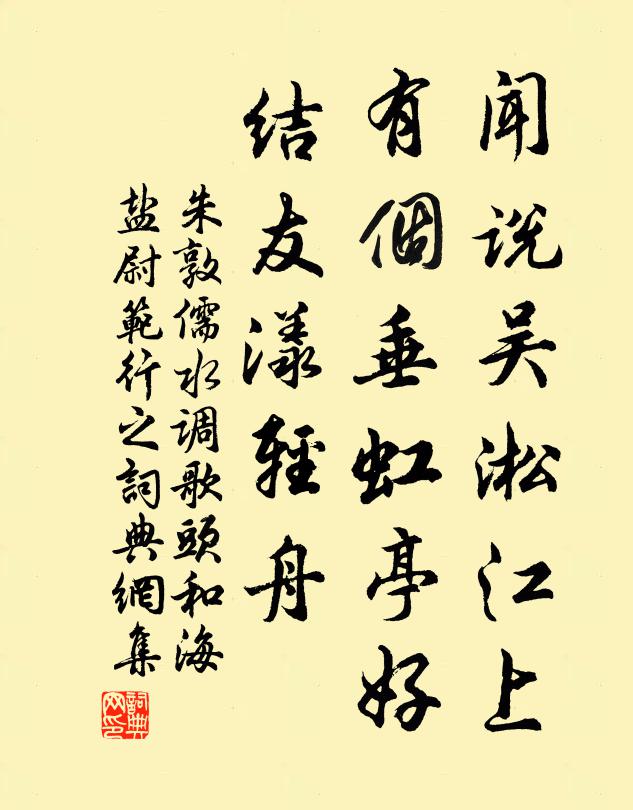 闻说吴淞江上
有個垂虹亭好
结友漾輕舟
朱敦儒水调歌頭和海
盐尉範行之詞典網集
詞典网印